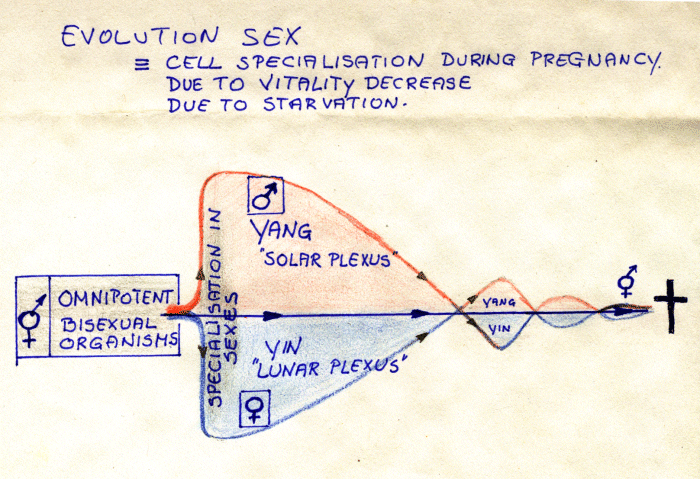 EVOLUTION SEX
≡ CELL SPECIALISATION DURING PREGNANCY.
DUE TO VITALITY DECREASE
DUE TO STARVATION.
♂
YANG
"SOLAR PLEXUS"
SPECIALISATION IN
SEXES
OMNIPOTENT
BISEXUAL
ORGANISMS
YANG
YIN
YIN
"LUNAR PLEXUS"
♀